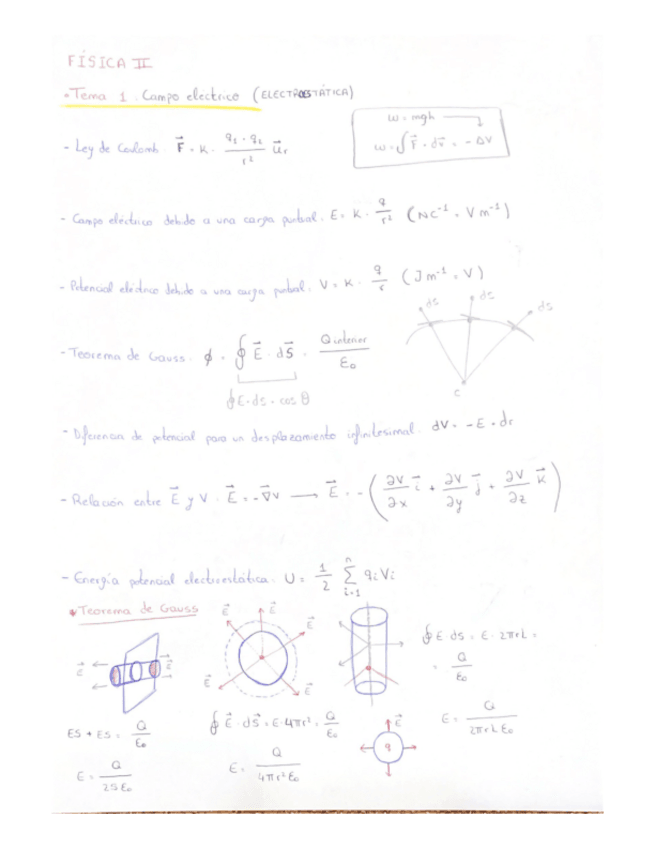 FÍSICA II
• Tema 1. Campo electrico (ELECTROSTÁTICA)
w = mgh
w = ∫ F⃗ · dr⃗ = - ΔV
- Ley de Coulomb. F⃗ = K · q₁ · q₂ / r² u⃗r
- Campo eléctrico debido a una carga puntual. E = K · q / r² (NC⁻¹ = Vm⁻¹)
- Potencial eléctrico debido a una carga puntual. V = K · q / r (Jm⁻¹ = V)
ds ds ds
c
- Teorema de Gauss. ϕ = ∮ E⃗ · dS⃗ = Q interior / ε₀
∮ E · ds · cos θ
- Diferencia de potencial para un desplazamiento infinitesimal. dV = - E · dr
- Relación entre E⃗ y V. E⃗ = -∇⃗V → E⃗ = - (∂V/∂x i⃗ + ∂V/∂y j⃗ + ∂V/∂z k⃗)
- Energía potencial electrostática. U = 1/2 Σ i=1 n qᵢVᵢ
* Teorema de Gauss
E⃗ E⃗
E⃗ E⃗ E⃗ E⃗ E⃗
∮ E ds = E · 2πrL =
= Q / ε₀
E = Q / 2πrLε₀
ES + ES = Q / ε₀
E = Q / 2Sε₀
∮ E⃗ · dS⃗ = E · 4πr² = Q / ε₀
E = Q / 4πr²ε₀
E⃗
q